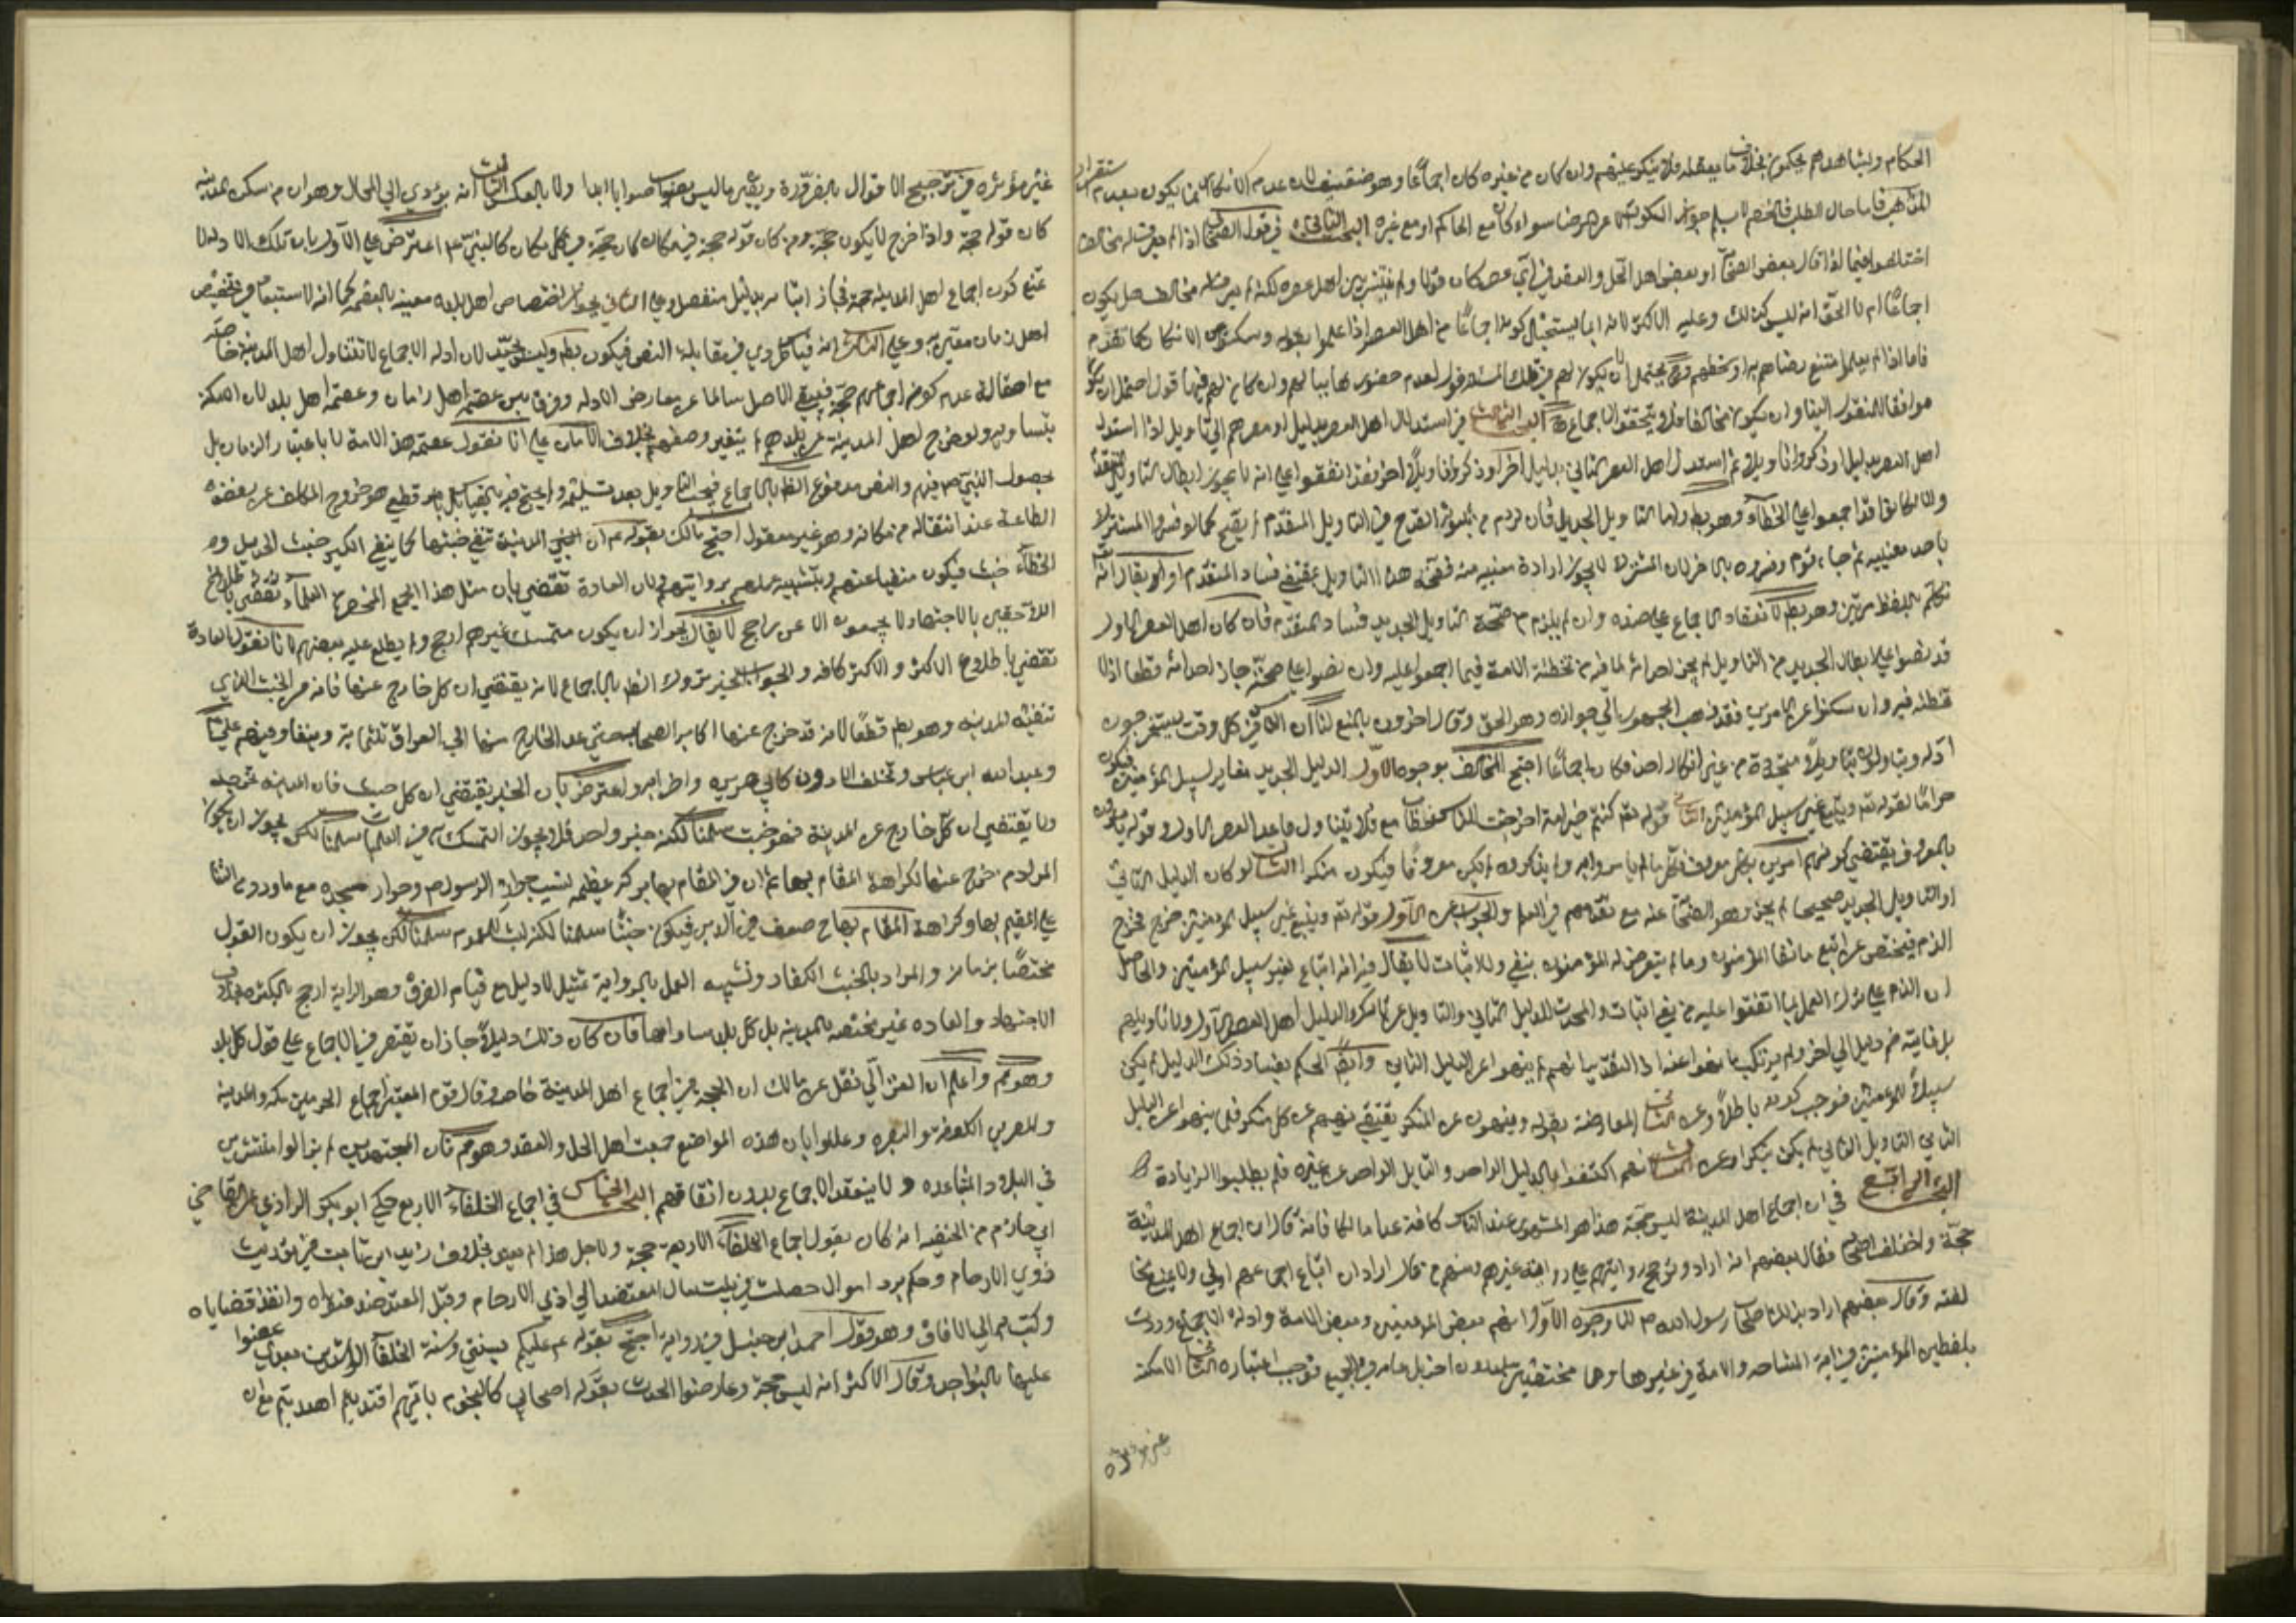 الحكام ويشاهدهم يحكمون بخلاف ما يعتقده فلا ينكر عليهم وان كان من غيره كان اجماعا وهو ضعيف لان عدم الانكار انما يكون بعد استقرار
المذاهب فاما حال الطلب فالخصم لا يسلم جواز السكوت الا عن الرضا سواء كان مع الحاكم او مع غيره البحث الثاني في قول الصحابي اذا لم يعرف له مخالف
اختلفوا فيما اذا قال بعض الصحابة او بعض اهل الحل والعقد في اي عصر كان قولا ولم ينتشر بين اهل عصره لكنه لم يعرف له مخالف هل يكون
اجماعا ام لا الحق انه ليس كذلك وعليه الاكثر لانه انما يستحيل كونه اجماعا من اهل العصر اذا علموا بقوله وسكتوا عن الانكار كما تقدم
فاما اذا لم يعلموا امتنع رضاهم به او سخطهم ويحتمل ان لا يكون لهم في تلك المسئلة قول لعدم حضورها ببالهم وان كان لهم فيها قول احتمل ان يكون
موافقا للمنقول الينا وان يكون مخالفا فلا يتحقق الاجماع البحث الثالث في استدلال اهل العصر بدليل او مصيرهم الى تأويل اذا استدل
اهل العصر بدليل او ذكروا تأويلا ثم استدل اهل العصر الثاني بدليل اخر او ذكروا تأويلا اخر فقد اتفقوا على انه لا يجوز ابطال التأويل المتقدم
والا لكانوا قد اجمعوا على الخطأ وهو بط واما التأويل الجديد فان لزم من ثبوته القدح في التأويل المتقدم لم يصح كما لو فسروا المشترك
باحد معنييه ثم جاء قوم وفسروه بالاخر لان المشترك لا يجوز ارادة معنييه منه فصحة هذا التأويل تقتضي فساد المتقدم او يقال انه
تكلم باللفظ مرتين وهو بط لانعقاد الاجماع على ضده وان لم يلزم من صحة التأويل الجديد فساد المتقدم فان كان اهل العصر الاول
قد نصوا على ابطال الجديد من التأويل لم يجز احداثه لما فيه من تخطئة الامة فيما اجمعوا عليه وان نصوا على صحته جاز احداثه قطعا اذ لا
تخطئة فيه وان سكتوا عن الامرين فقد ذهب الجمهور الى جوازه وهو الحق وقال اخرون بالمنع لنا ان الناس في كل وقت يستخرجون
ادلة وتأويلات متجددة من غير انكار احد فكان اجماعا احتج المخالف بوجوه الاول الدليل الجديد مغاير لسبيل المؤمنين فيكون
حراما لقوله تعالى ويتبع غير سبيل المؤمنين الثاني قوله تعالى كنتم خير امة اخرجت للناس خطاب مع فلا يتناول ما عدا العصر الاول وقوله يأمرون
بالمعروف يقتضي كونهم امرين بكل معروف فكل ما لم يأمروا به ولم يذكروه لم يكن معروفا فيكون منكرا الثالث لو كان الدليل الثاني
او التأويل الجديد صحيحا لم يجز ذهول الصحابة عنه مع تقدمهم في العلم والجواب عن الاول قوله تعالى ويتبع غير سبيل المؤمنين خرج مخرج
الذم فيختص عن اتبع ما نفاه المؤمنون وما لم يتعرض له المؤمنون بنفي ولا اثبات لا يقال فيه انه اتباع لغير سبيل المؤمنين والحاصل
ان الذم على ترك العمل بما اتفقوا عليه من نفي او اثبات والمحدث للدليل الثاني والتأويل غير تارك لدليل اهل العصر الاول ولا تأويلهم
بل غايته ضم دليل الى اخر ولم يرتكب ما نهوا عنه اذ التقدير انهم لم ينهوا عن الدليل الثاني وايضا الحكم بفساد ذلك الدليل لم يكن
سبيلا للمؤمنين فوجب كونه باطلا وعن الثاني المعارضة بقوله وينهون عن المنكر يقتضي نهيهم عن كل منكر فلما لم ينهوا عن الدليل
الثاني والتأويل الثاني لم يكن منكرا وعن الثالث انهم اكتفوا بالدليل الواحد والتأويل الواحد عن غيره فلم يطلبوا الزيادة
البحث الرابع في ان اجماع اهل المدينة ليس حجة هذا هو المشهور عند الناس كافة عدا مالكا فانه قال ان اجماع اهل المدينة
حجة واختلف اصحابه فقال بعضهم انه اراد ترجيح روايتهم على رواية غيرهم ومنهم من قال اراد ان اتباع اجماعهم اولى ولا يمنع مخا
لفته وقال بعضهم اراد بذلك اصحاب رسول الله ص لنا وجوه الاول انهم بعض المؤمنين وبعض الامة وادلة الاجماع وردت
بلفظين المؤمنين في اية المشاقة والامة في غيرها وهما مختصتين بهم دون اخر بل عامة في الجميع فوجب اعتباره الثاني الامكنة
غير مؤثرة
غير مؤثرة في ترجيح الاقوال بالضرورة ويصير ما ليس بصواب صوابا ابدا ولا بالعكس الثالث انه يؤدي الى المحال وهو ان من سكن المدينة
كان قوله حجة واذا خرج لا يكون حجة ومن كان قوله حجة في مكان كان حجة في كل مكان كالنبي ص اعترض على الاول بان تلك الادلة لا
تمنع كون اجماع اهل المدينة حجة فجاز اثباته بدليل منفصل وعلى الثاني يجوز اختصاص اهل بلدة معينة بالعصمة كما انه لا استبعاد في تخصيص
اهل زمان معين به وعلى الثالث انه قياس طردي في مقابلة النص فيكون بط وليست بجيد لان ادلة الاجماع لا تتناول اهل المدينة خاصة
مع اصالة عدم كون اجماعهم حجة فيبقى الاصل سالما عن معارض الادلة وفرق بين عصمة اهل زمان وعصمة اهل بلد لان الامكنة
متساوية ولو خرج اهل المدينة عن بلدهم لم يتغير وصفهم بخلاف الازمان على انا نقول عصمة هذه الامة لا باعتبار الزمان بل
بحصول النبي ص فيهم والنص مدفوع الظ بالاجماع فيجب التأويل بعد تسليمه ولم يحتج فيه بالقياس بل بامر قطعي هو خروج المكلف عن بعضه
الطاعة عند انتقاله من مكانه وهو غير معقول احتج مالك بقوله ع ان المدينة تنفي خبثها كما ينفي الكير خبث الحديد و
الخطأ خبث فيكون منفيا عنهم وبتشبيه عملهم بروايتهم ولان العادة تقتضي بان مثل هذا الجمع المنحصر من العلماء
اللاحقين بالاجتهاد لا يجمعون الا عن راجح لا يقال يجوز ان يكون متمسك غيرهم ارجح ولم يطلع عليه بعضهم لانا نقول العادة
تقضي باطلاع الاكثر والاكثر كافة والجواب الخبر متروك الظ بالاجماع لانه يقتضي ان كل خارج عنها فانه من الخبث الذي
تنفيه المدينة وهو بط قطعا لانه قد خرج عنها اكابر الصحابة حتى عد الخارج منها الى العراق ثلثمائة ونيفا وفيهم علي ع
وعبد الله ابن عباس وتخلف الادون كابي هريرة واضرابه واعترض بان الخبر يقتضي ان كل خبث فان المدينة تخرجه
ولا يقتضي ان كل خارج عن المدينة فهو خبث سلمنا لكنه خبر واحد فلا يجوز التمسك به في العلميات سلمنا لكن يجوز ان يكون
المراد من خرج عنها لكراهة المقام بها مع ان في المقام بها بركة عظيمة بسبب جوار الرسول ص وجوار مسجده مع ما ورد من الثناء
على المقيم بها وكراهة المقام بها من ضعف في الدين فيكون خبثا سلمنا لكنه ليس للعموم سلمنا لكن يجوز ان يكون القول
مختصا بزمانه والمراد بالخبث الكفار وتشبيه العمل بالرواية تمثيل لا دليل مع قيام الفرق وهو الرواية ارجح بالكثرة بخلاف
الاجتهاد والعادة غير مختصة بالمدينة بل كل بلد ساواها فان كان ذلك دليلا جاز ان يقتصر في الاجماع على قول كل بلد
وهو مم واعلم ان الغزالي نقل عن مالك ان الحجة في اجماع اهل المدينة خاصة وقال قوم المعتبر اجماع الحرمين مكة والمدينة
والمصرين الكوفة والبصرة وعللوا بان هذه المواضع جمعت اهل الحل والعقد وهو مم فان المجتهدين لم يزالوا منتشرين
في البلاد المتباعدة ولا ينعقد الاجماع بدون اتفاقهم البحث الخامس في اجماع الخلفاء الاربع حكى ابو بكر الرازي عن القاضي
ابي حازم من الحنفية انه كان يقول اجماع الخلفاء الاربعة حجة ولاجل هذا لم يعتد بخلاف زيد ابن ثابت في توريث
ذوي الارحام وحكم برد اموال حصلت في بيت مال المعتضد الى ذوي الارحام وقبل المعتضد فتواه وانفذ قضاياه
وكتب به الى الافاق وهو قول احمد ابن حنبل في رواية احتج بقوله ع عليكم بسنتي وسنة الخلفاء الراشدين بعدي عضوا
عليها بالنواجذ وقال الاكثر انه ليس حجة وعارضوا الحديث بقوله اصحابي كالنجوم بايهم اقتديتم اهتديتم مع ان